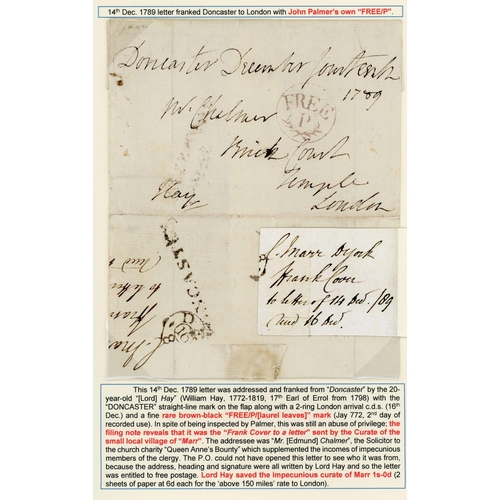 14th Dec. 1789 letter franked Doncaster to London with John Palmer's own "FREE/P".
Doncaster December fourteenth
1789
Mr. Chalmer
FREE
P
Brick Court
Temple
Hay
London
J. Marr D York
Frank Cover
to letter of 14 Dec. /89
recd 16 Dec.
This 14th Dec. 1789 letter was addressed and franked from "Doncaster" by the 20-
year-old "[Lord] Hay" (William Hay, 1772-1819, 17th Earl of Errol from 1798) with the
"DONCASTER" straight-line mark on the flap along with a 2-ring London arrival c.d.s. (16th
Dec.) and a fine rare brown-black "FREE/P/[laurel leaves]" mark (Jay 772, 2nd day of
recorded use). In spite of being inspected by Palmer, this was still an abuse of privilege; the
filing note reveals that it was the "Frank Cover to a letter" sent by the Curate of the
small local village of "Marr". The addressee was "Mr. [Edmund] Chalmer", the Solicitor to
the church charity "Queen Anne's Bounty" which supplemented the incomes of impecunious
members of the clergy. The P.O. could not have opened this letter to see who it was from,
because the address, heading and signature were all written by Lord Hay and so the letter
was entitled to free postage. Lord Hay saved the impecunious curate of Marr 1s-0d (2
sheets of paper at 6d each for the 'above 150 miles' rate to London).